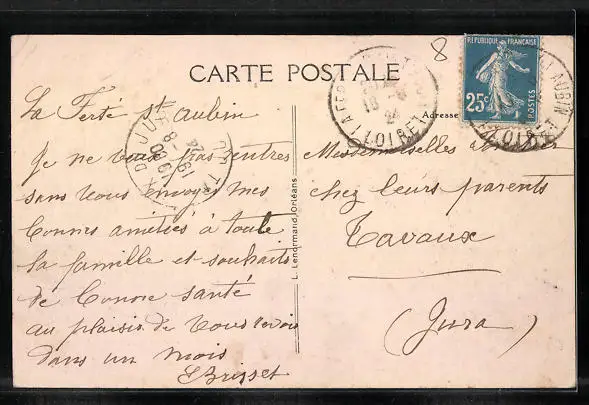 CARTE POSTALE
8
RÉPUBLIQUE FRANÇAISE
25c
POSTES
LOIRET
AUBIN
LOIRET
Adresse
La Ferté St Aubin
Je ne veux pas rentrer
sans vous envoyer mes
bonnes amitiés à toute
la famille et souhaits
de bonne santé
au plaisir de vous revoir
dans un mois
EBrisset
JURA
L. Lenormand, Orléans
Mesdemoiselles
chez leurs parents
Tavaux
(Jura)